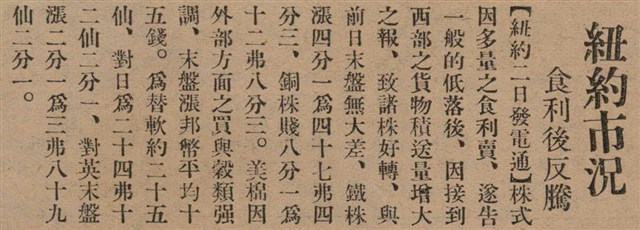 紐約市況
食利後反騰
【紐約二日發電通】株式
因多量之食利賣、遂告
一般的低落後、因接到
西部之貨物積送量增大
之報、致諸株好轉、與
前日末盤無大差、鐵株
漲四分一爲四十七弗四
分三、銅株賤八分一爲
十二弗八分三。美棉因
外部方面之買與穀類强
調、末盤漲邦幣平均十
五錢。爲替軟約二十五
仙、對日爲二十四弗十
二仙二分一、對英末盤
漲二分一爲三弗八十九
仙二分一。